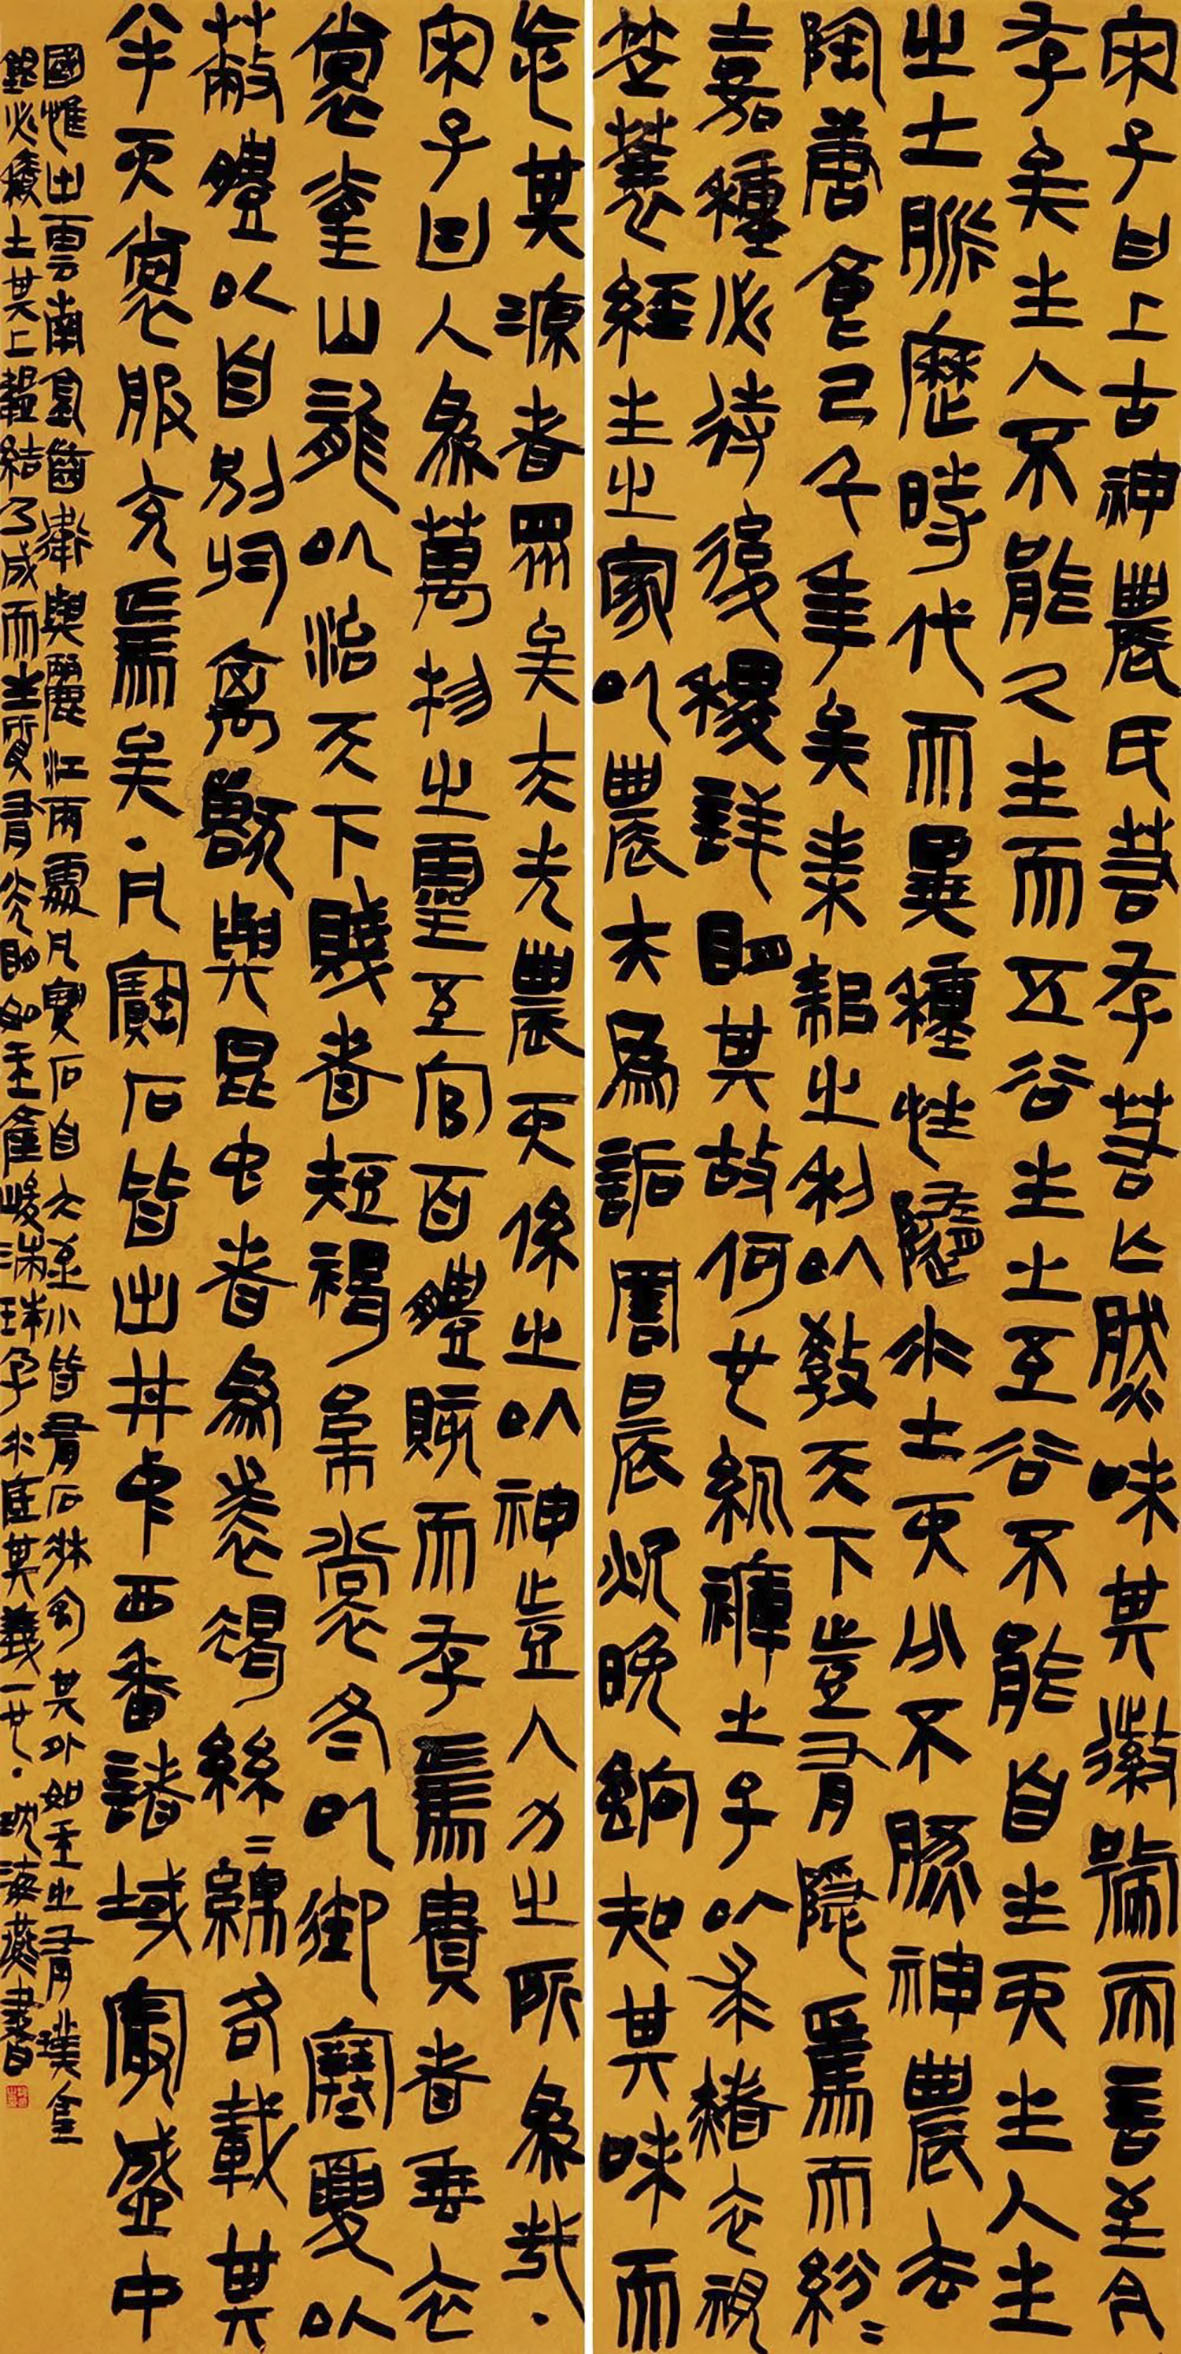 宋子曰上古神農氏若存若亡然味其徽號兩言至今
存矣生人不能久生而五谷生之五谷不能自生而生人生
之土脈歷時代而異種性隨水土而分不然神農去
陶唐食已千年矣耒耜之利以教天下豈有隱焉而紛〻
嘉種必待後稷詳明其故何也紈褲之子以赭衣視
笠蓑經生之家以農夫為詬詈晨炊晚餉知其味而
忘其源者眾矣夫先農而係之以神豈人力之所為哉
宋子曰人為萬物之靈五官百體賅而存焉貴者垂衣
裳煌山龍以治天下賤者短褐枲裳冬以御寒夏以
蔽體以自別於禽獸與昆虫者為裘褐絲〻綿各載其
半而裳服充焉矣凡寶石皆出井中西番諸域最盛中
國惟出雲南金齒衛與麗江兩處凡寶石自大至小皆有石牀包其外如玉之有璞金
銀必積土其上韞結乃成而生質有光明如玉產峻湍珠孕水底其義一也沈海燕書